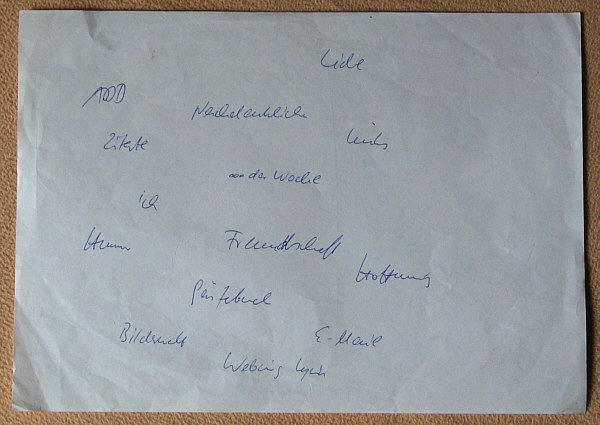 Liebe
Nachdenkliches
Zitate
Links
...der Woche
ich
Humor
Freundschaft
Hoffnung
Gästebuch
E-Mail
Webring Lyrik